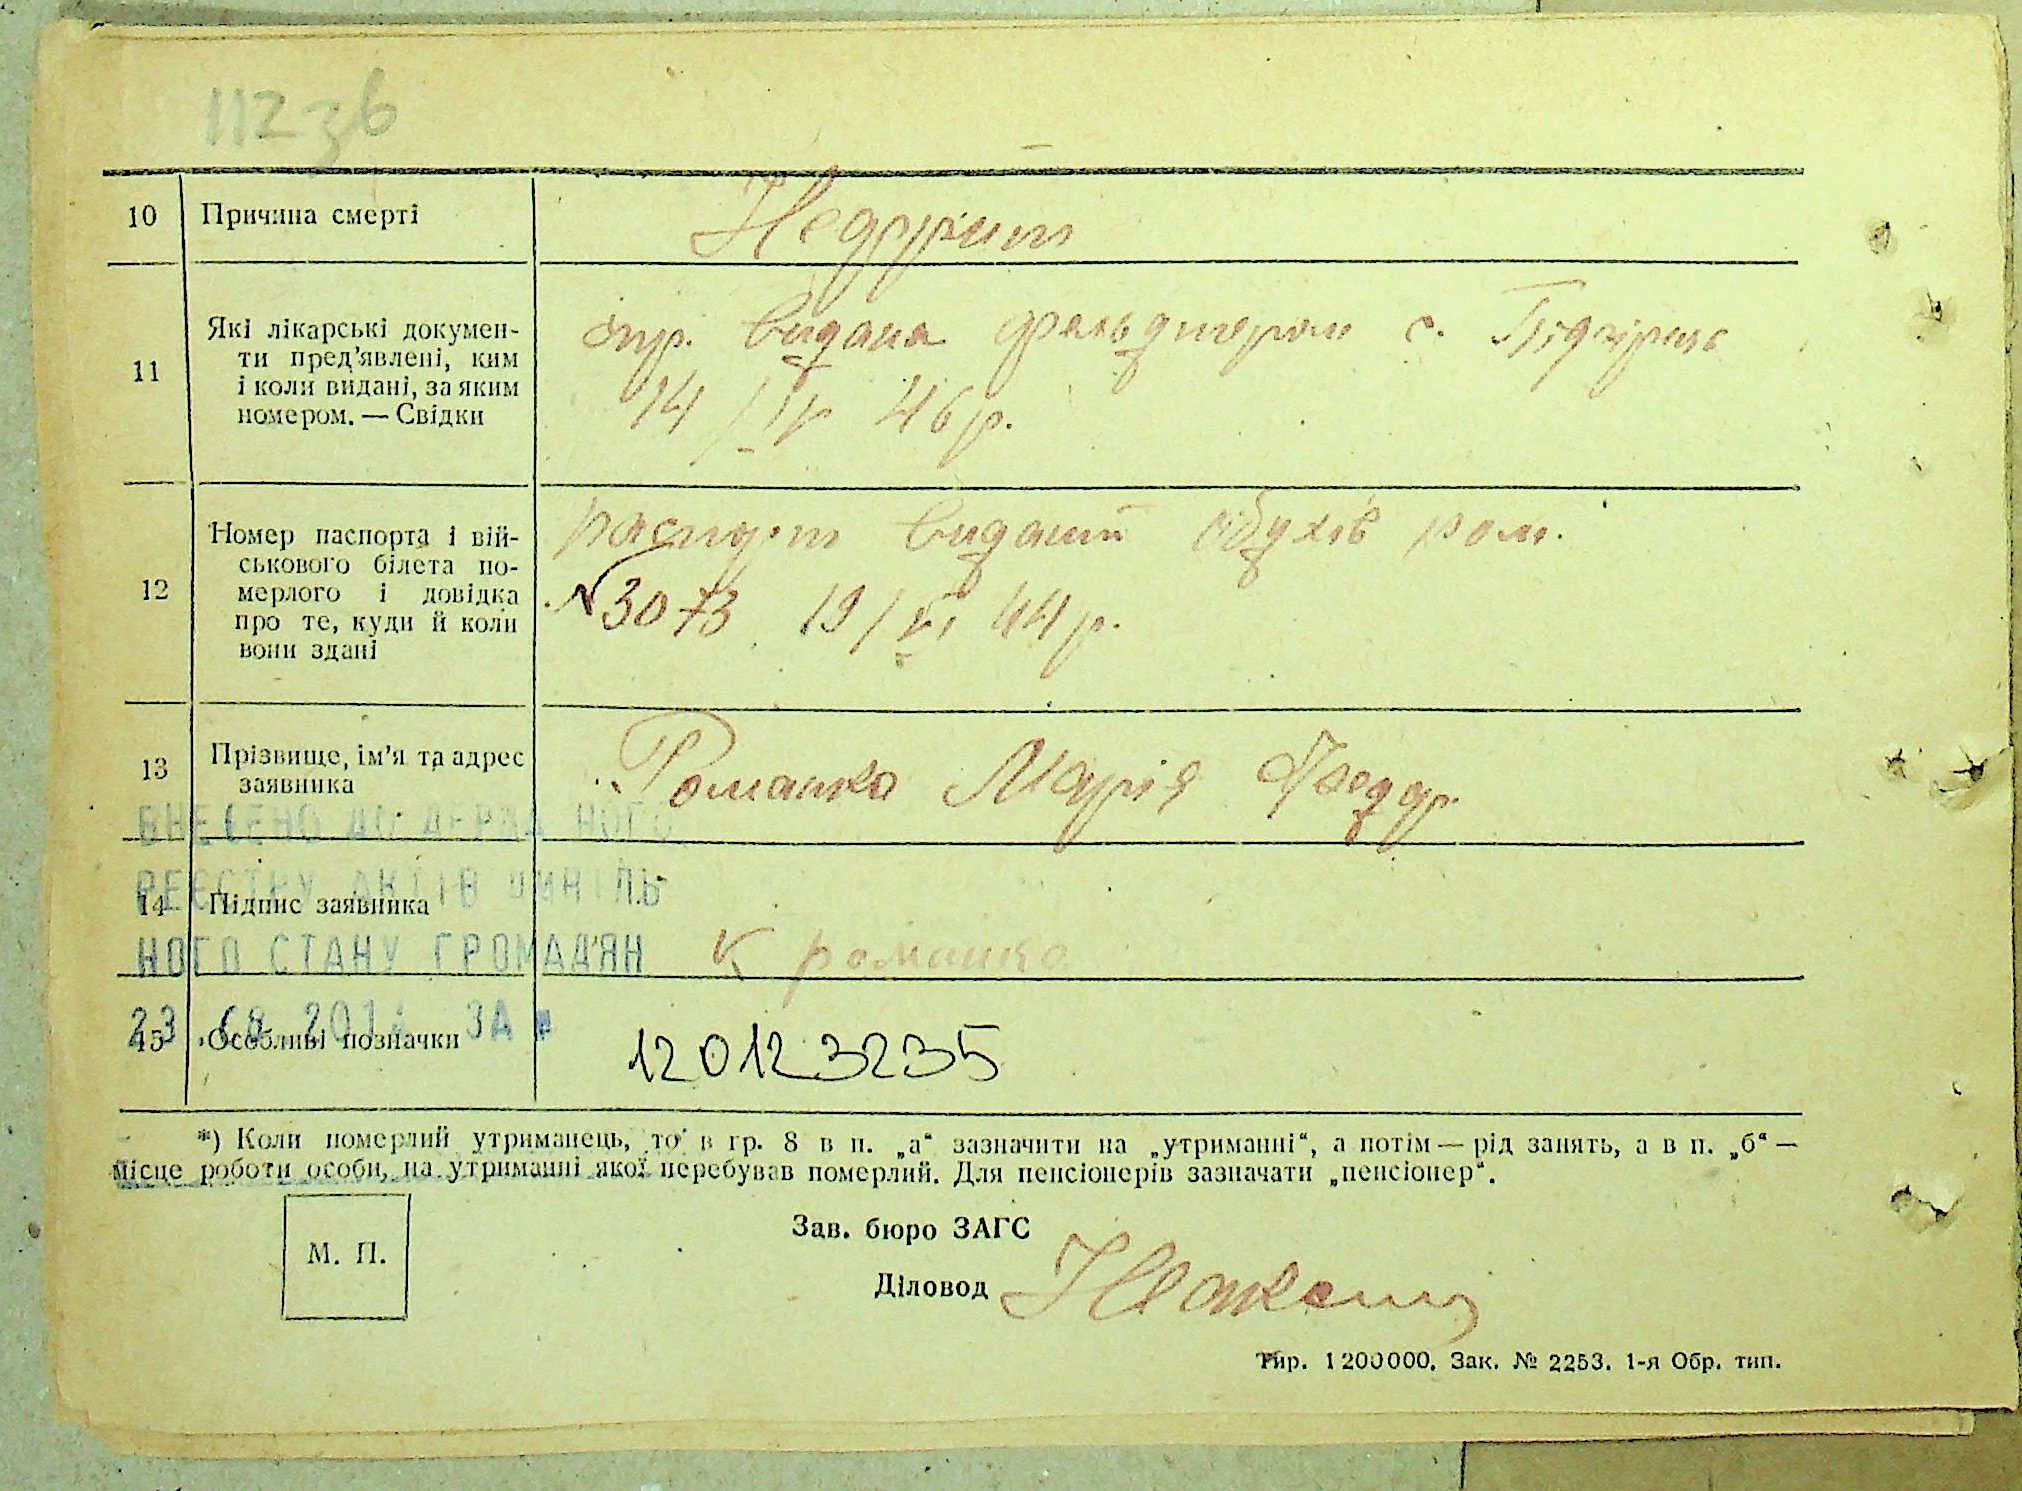 112 зв
10 Причина смерті Нефрит
11 Які лікарські докумен-
ти пред’явлені, ким
і коли видані, за яким
номером. — Свідки
видана фельдшером с. Підгірць
14/IV 46 р.
12 Номер паспорта і вій-
ськового білета по-
мерлого і довідка
про те, куди й коли
вони здані
паспорт виданий Обухів
№ 3073 19/VI 44 р.
13 Прізвище, ім’я та адрес
заявника
Романко Марія Федор.
ВНЕСЕНО ДО ДЕРЖАВНОГО
РЕЄСТРУ АКТІВ ЦИВІЛЬ
14 Підпис заявника
НОГО СТАНУ ГРОМАДЯН
К романко
23 ЗА №
15 Особливі позначки
120123235
*) Коли померлий утриманець, то в гр. 8 в п. „а“ зазначити на „утриманні“, а потім — рід занять, а в п. „б“ —
місце роботи особи, на утриманні якої перебував померлий. Для пенсіонерів зазначати „пенсіонер“.
М. П.
Зав. бюро ЗАГС
Діловод
Тир. 1200000. Зак. № 2253. 1-я Обр. тип.